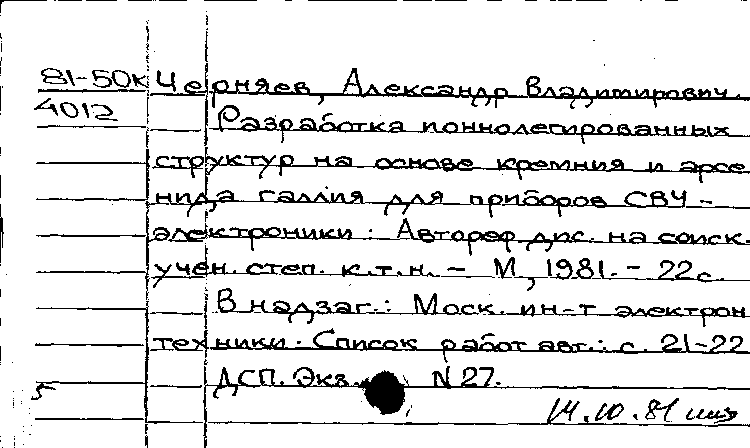 81-50к Черняев, Александр Владимирович.
4012 Разработка ионнолегированных
структур на основе кремния и арсе
нида галлия для приборов СВЧ-
электроники: Автореф. дис. на соиск.
учен. степ. к.т.н. - М, 1981. - 22с.
В надзаг.: Моск. ин-т электрон
техники. Список работ авт.: с. 21-22
ДСП. Экз. N 27.
5
14.10.81